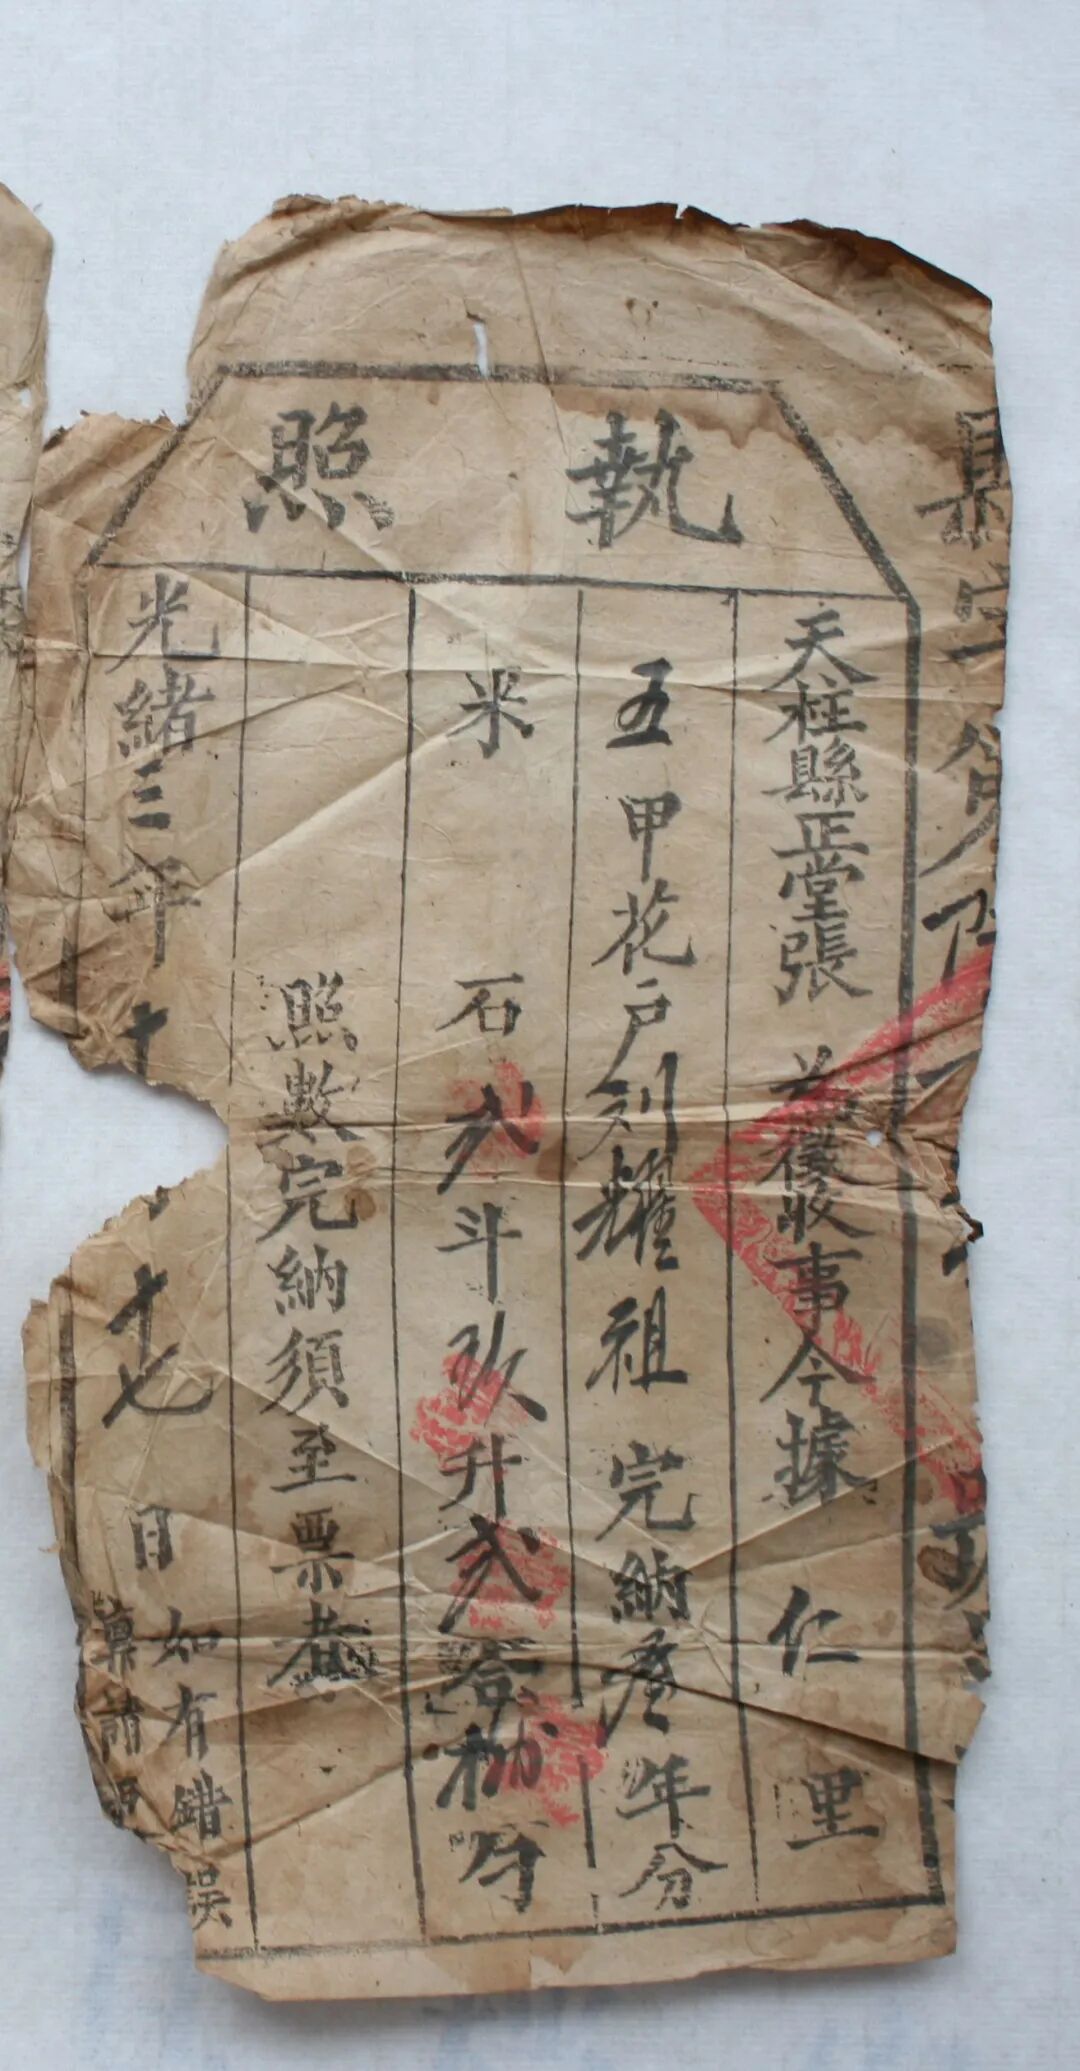 執照
天柱縣正堂張 為徵收事今據 仁 里
五甲花户刘耀祖 完納叁年分
米 石弐斗玖升弐合柒勺
照數完納須至票者
光緒三年十 十七日
如有錯誤
稟請
縣字第